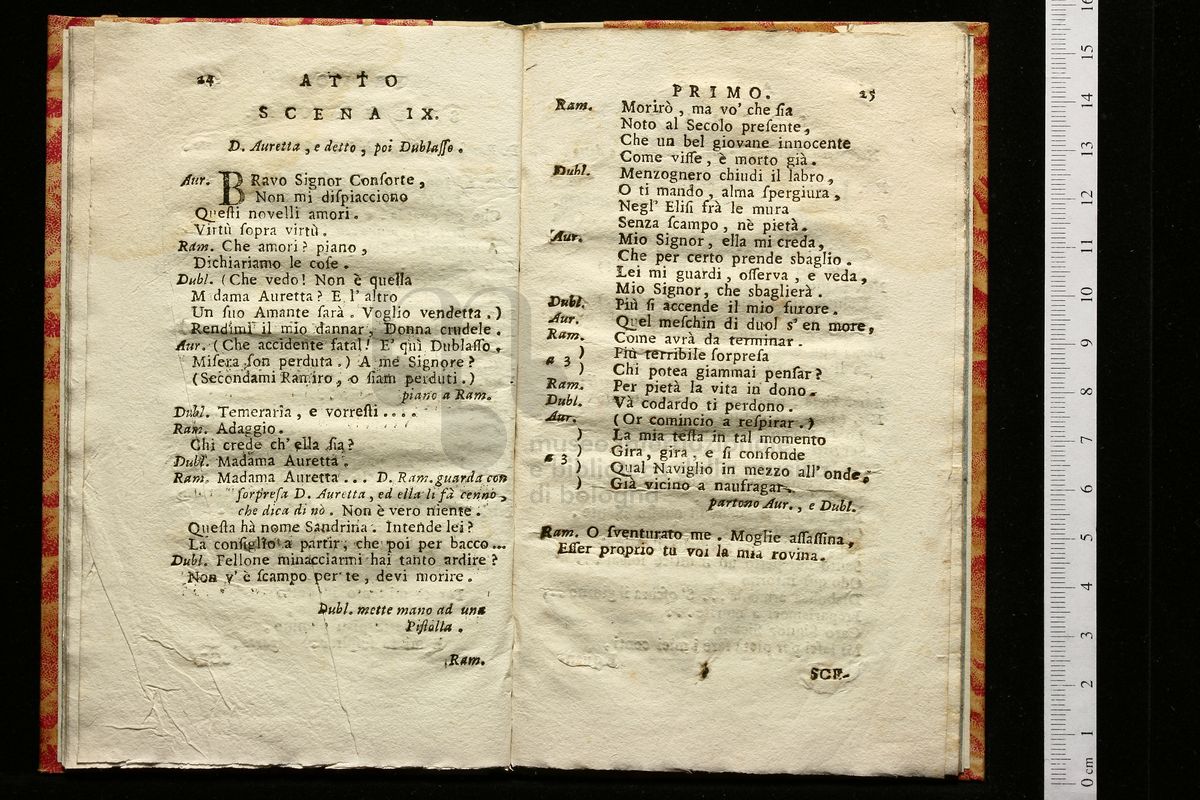 24 ATTO
SCENA IX.
D. Auretta, e detto, poi Dublaſſo.
Aur. BRavo Signor Conſorte,
Non mi diſpiacciono
Queſti novelli amori.
Virtù ſopra virtù.
Ram. Che amori? piano,
Dichiariamo le coſe.
Dubl. (Che vedo! Non è queſta
M dama Auretta? E l'altro
Un ſuo Amante ſarà. Voglio vendetta.)
Rendimi il mio dannar, Donna crudele.
Aur. (Che accidente fatal! E' quì Dublaſſo.
Miſera ſon perduta.) A me Signore?
(Secondami Ramiro, o ſiam perduti.)
piano a Ram.
Dubl. Temeraria, e vorreſti....
Ram. Adaggio.
Chi crede ch'ella ſia?
Dubl. Madama Auretta.
Ram. Madama Auretta... D. Ram. guarda con
ſorpreſa D. Auretta, ed ella li fà cenno,
che dica di nò. Non è vero niente.
Queſta hà nome Sandrina. Intende lei?
La conſiglio a partir, che poi per bacco...
Dubl. Fellone minacciarmi hai tanto ardire?
Non v'è ſcampo per te, devi morire.
Dubl. mette mano ad una
Piſtolla.
Ram.
PRIMO. 25
Ram. Morirò, ma vo' che ſia
Noto al Secolo preſente,
Che un bel giovane innocente
Come viſſe, è morto già.
Dubl. Menzognero chiudi il labro,
O ti mando, alma ſpergiura,
Negl' Eliſi frà le mura
Senza ſcampo, nè pietà.
Aur. Mio Signor, ella mi creda,
Che per certo prende sbaglio.
Lei mi guardi, oſſerva, e veda,
Mio Signor, che sbaglierà.
Dubl. Più ſi accende il mio furore.
Aur. Quel meſchin di duol s'en more,
Ram. Come avrà da terminar.
a 3 ) Più terribile ſorpreſa
) Chi potea giammai penſar?
Ram. Per pietà la vita in dono.
Dubl. Và codardo ti perdono.
Aur. (Or comincio a reſpirar.)
) La mia teſta in tal momento
a 3 ) Gira, gira, e ſi confonde
) Qual Naviglio in mezzo all'onde,
) Già vicino a naufragar.
partono Aur., e Dubl.
Ram. O ſventurato me. Moglie aſſaſſina,
Eſſer proprio tu voi la mia rovina.
SCE-
museo
e biblio
di bologna